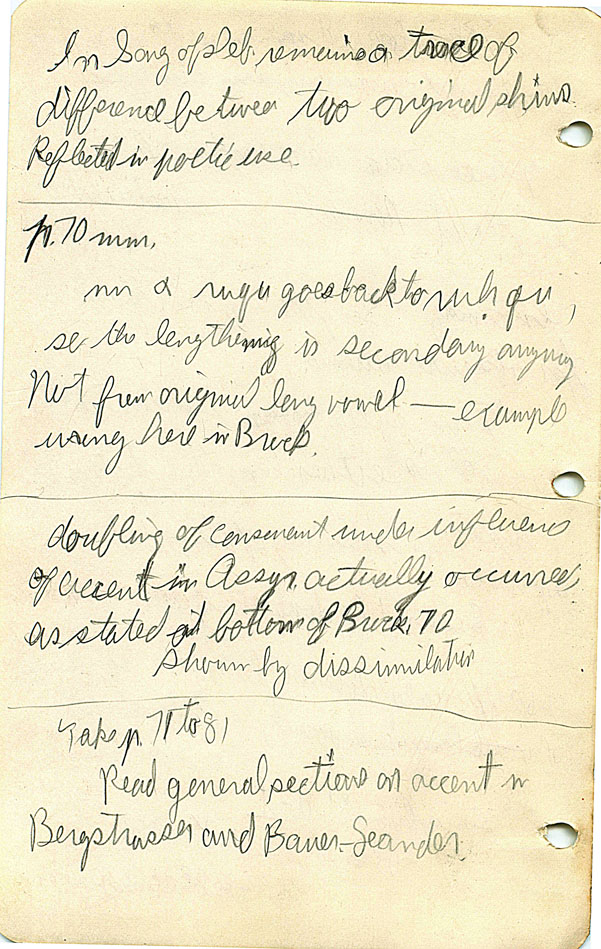 In Song of Deb. remains a trace of
difference between two original shins.
Reflected in poetic use
p. 70 mm,
goes back to
so the lengthening is secondary anyway
Not from original long vowel — example
wrong here in Brock.
doubling of consonant under influence
of accent in Assyr. actually occurred,
as stated at bottom of Brock. 70
Shown by dissimilation
Take p. 71 to 81
Read general sections on accent in
Bergstrasser and Bauer-Leander.